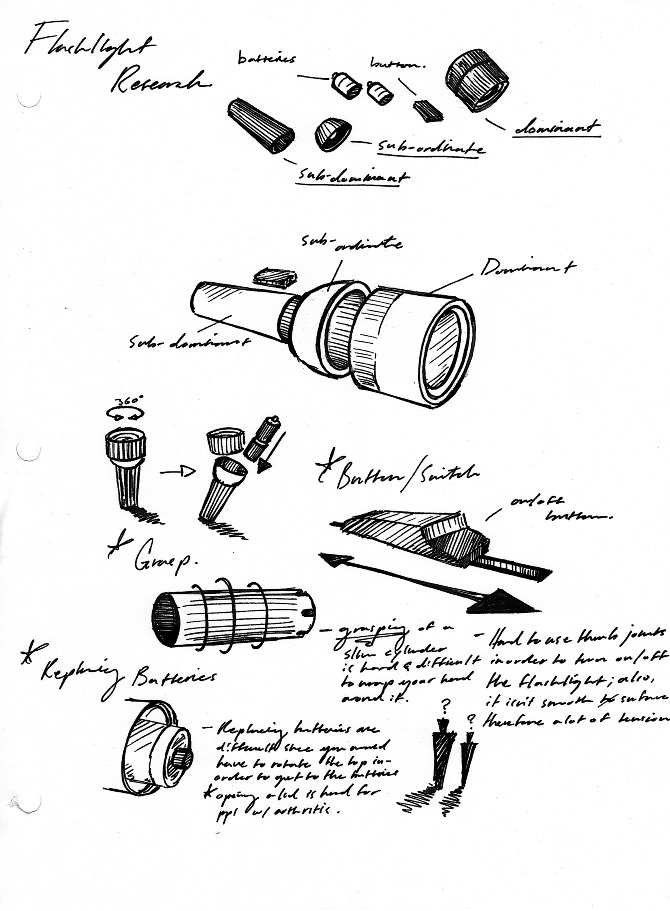 Flashlight
Research
batteries
button.
dominant
sub-ordinate
sub-dominant
sub-ordinate
Dominant
sub-dominant
360°
* Button/Switch
on/off
button.
* Grasp.
- grasping of a
slim cylinder
is hard & difficult
to wrap your hand
around it.
- Hard to use thumb joints
in order to turn on/off
the flashlight; also,
it isn't smooth surface
therefore a lot of tension
* Replacing Batteries
- Replacing batteries are
difficult since you would
have to rotate the top in-
order to get to the batteries
* opening a lid is hard for
ppl w/ arthritis.
?
?